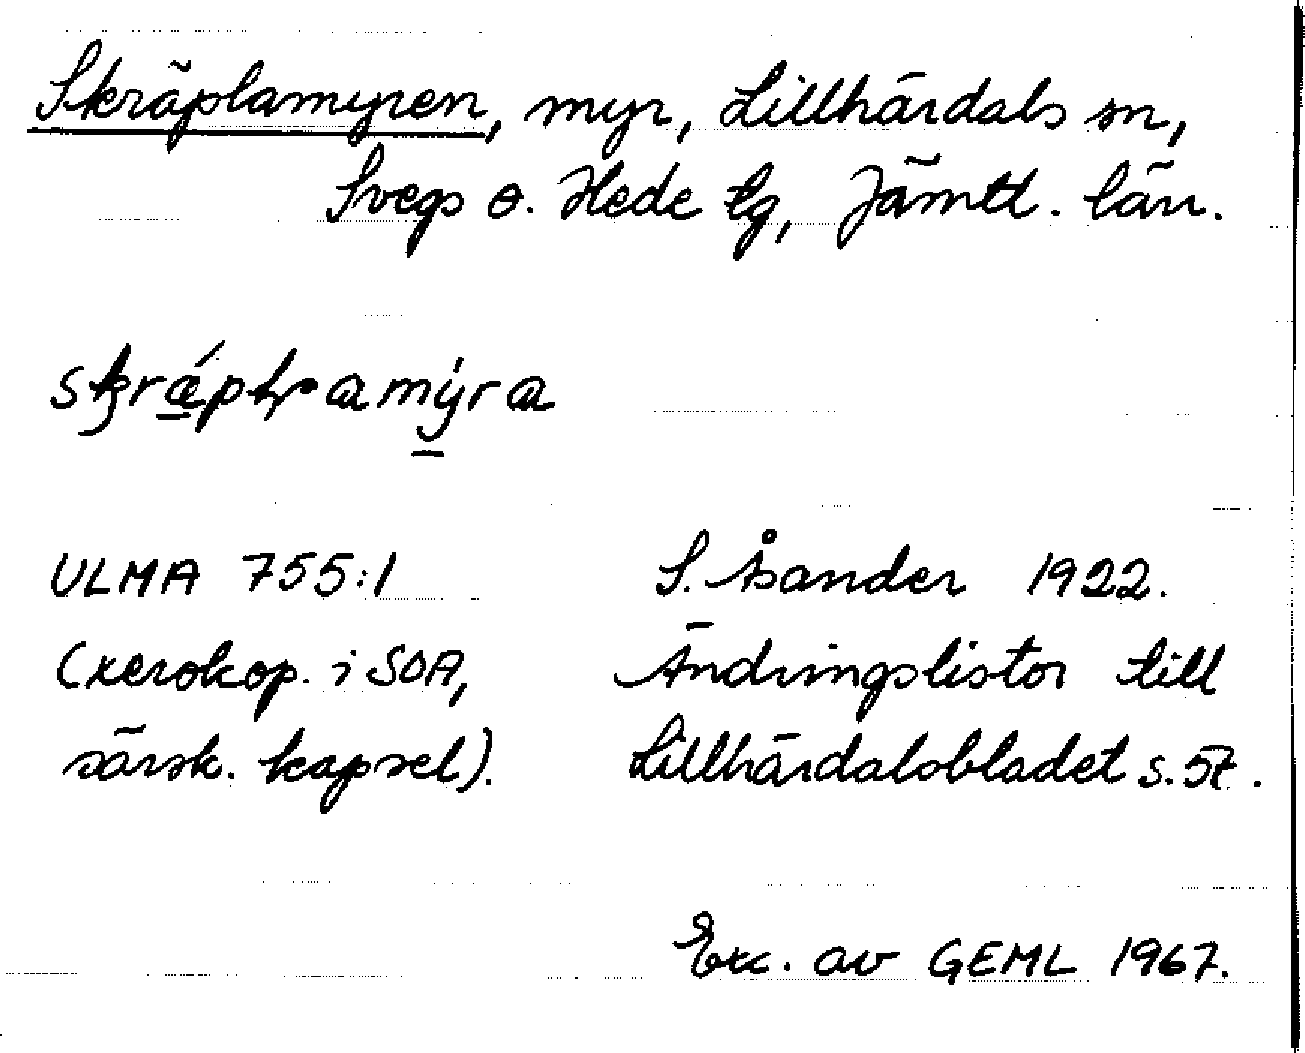 Skräplamyren, myr, Lillhärdals sn,
Svegs o. Hede tg, Jämtl. län.
ULMA 755:1
S. Åsander 1922.
(xerokop. i SOA,
Ändringslistor till
särsk. kapsel).
Lillhärdalsbladet s. 57.
Exc. av GEML 1967.